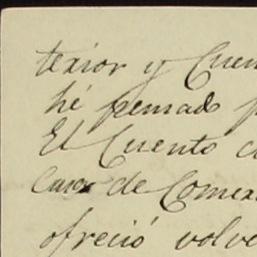 terior y Cuen
hé pensado p
El Cuento c
Casa de Comer
ofreció volve